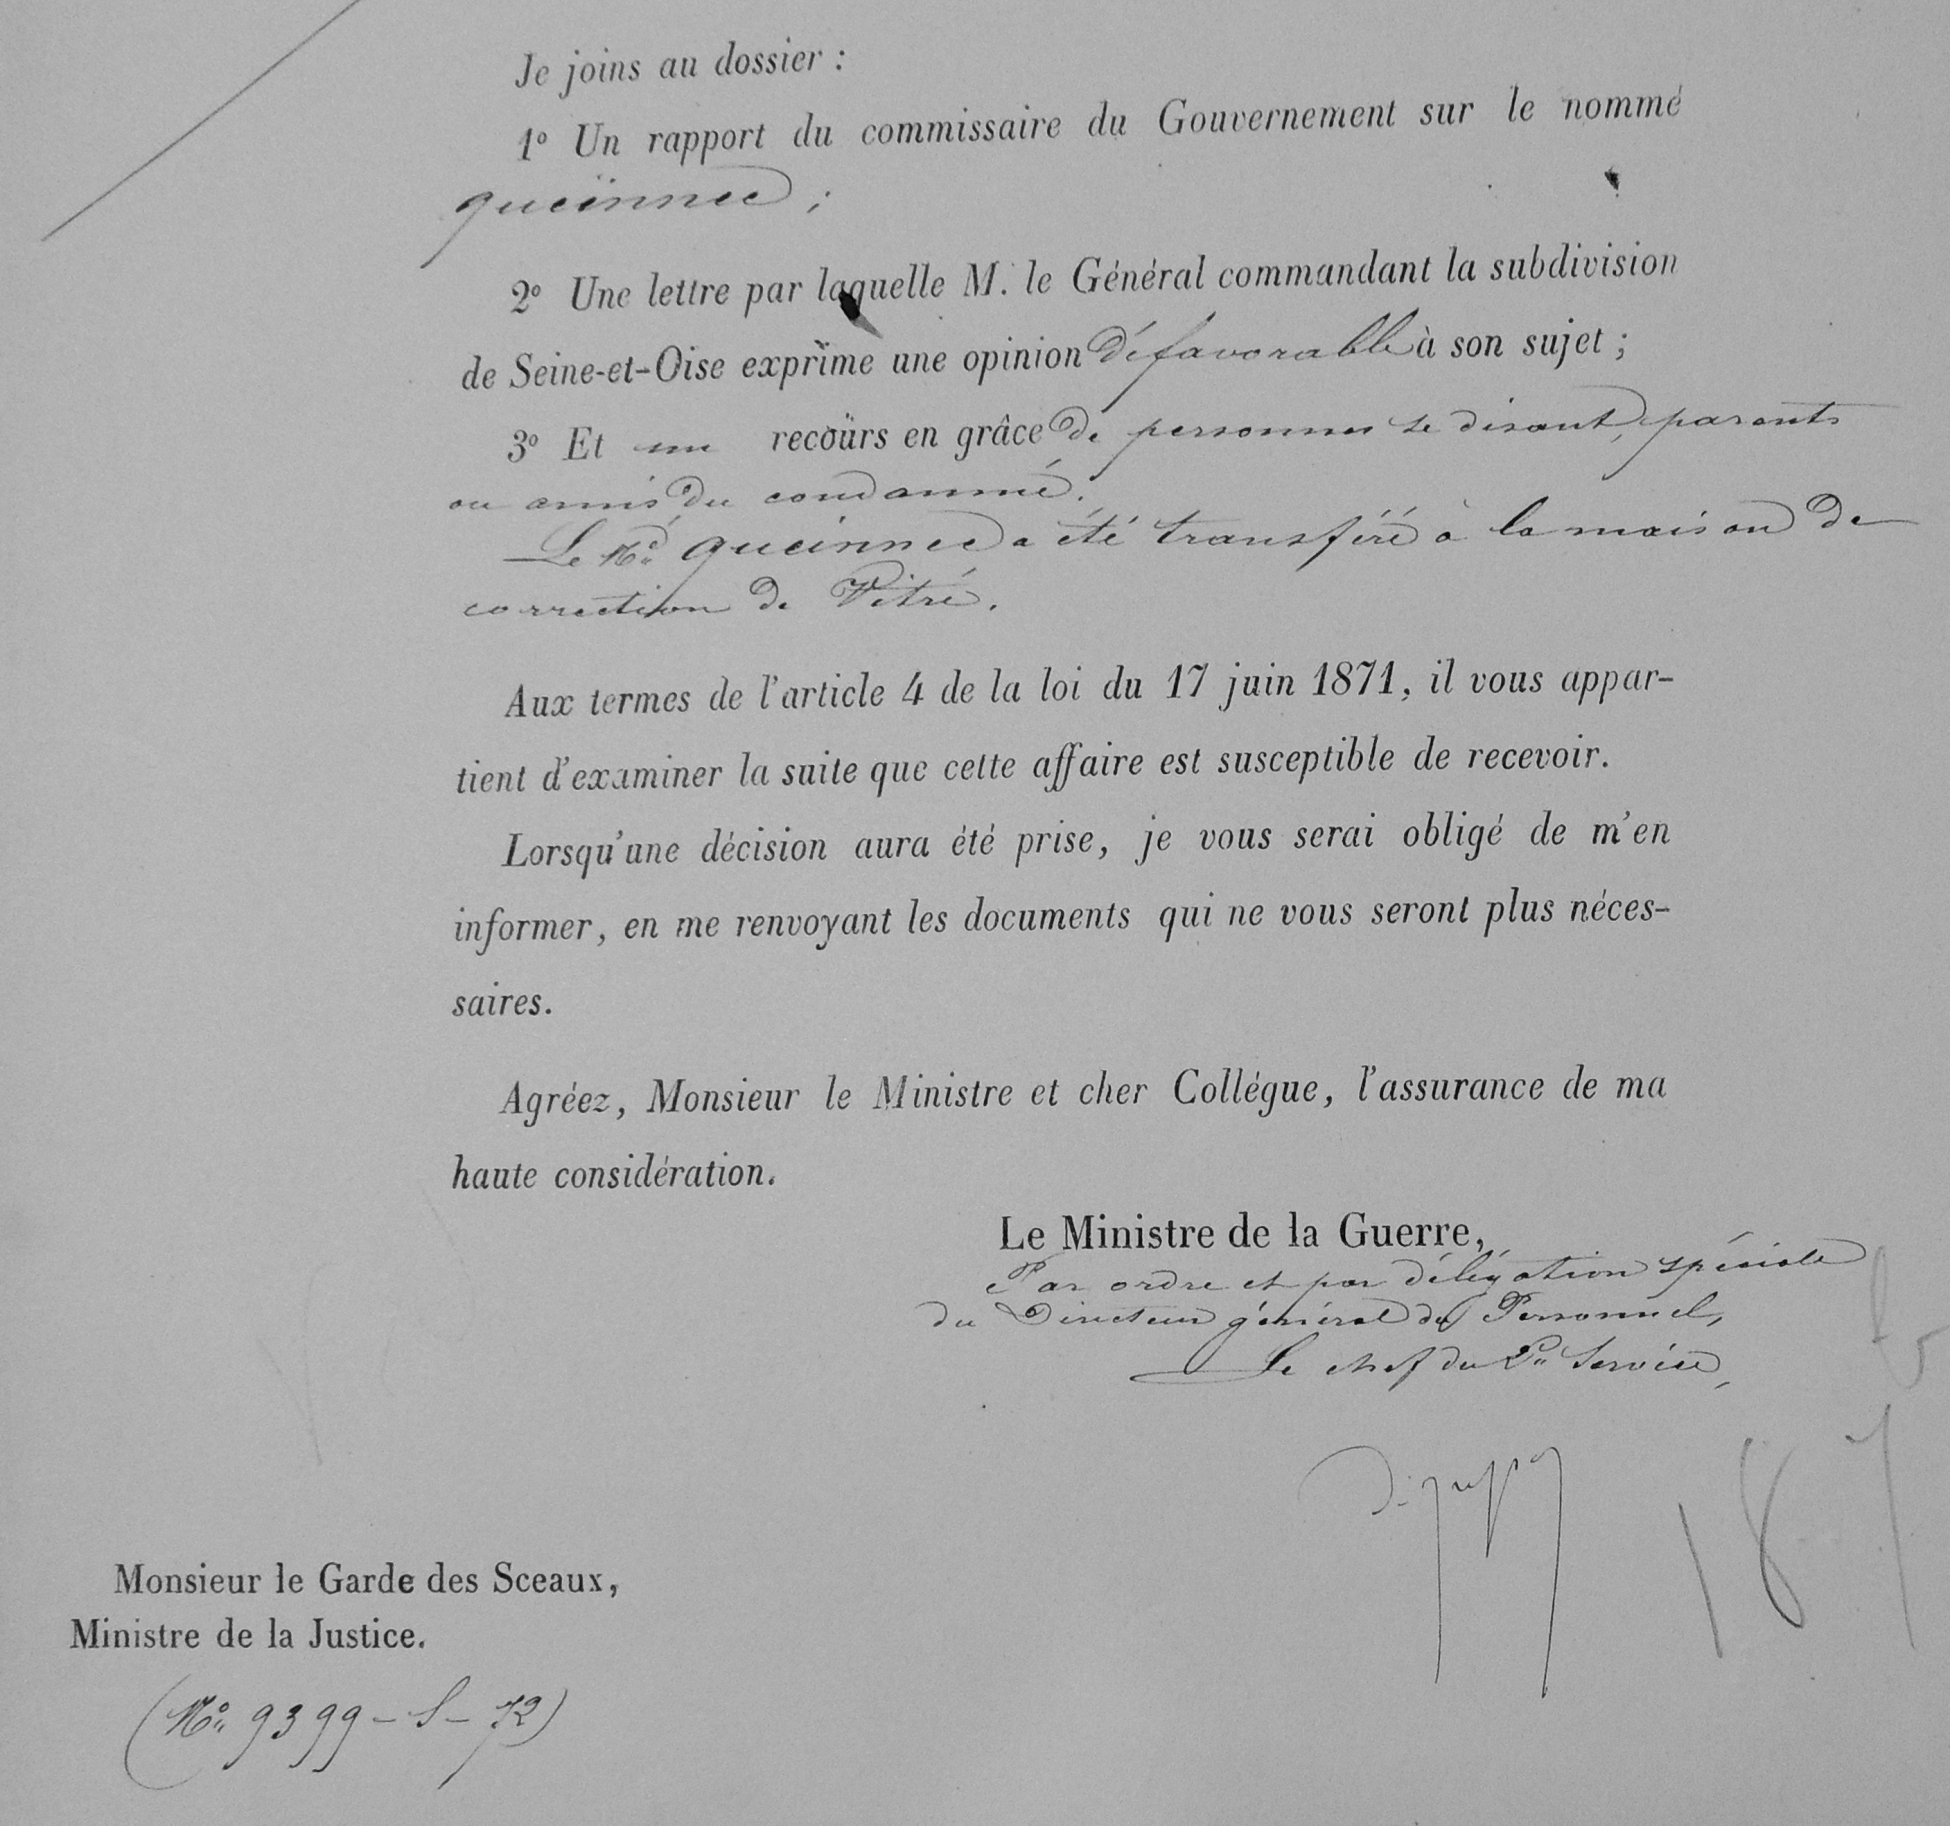 Je joins au dossier :
1° Un rapport du commissaire du Gouvernement sur le nommé
queïnnec ;
2° Une lettre par laquelle M. le Général commandant la subdivision
de Seine-et-Oise exprime une opinion défavorable à son sujet ;
3° Et un recours en grâce de personnes se disant parents
ou amis du condamné.
Le Né queinnec a été transféré à la maison de
correction de Vitré.
Aux termes de l'article 4 de la loi du 17 juin 1871, il vous appar-
tient d'examiner la suite que cette affaire est susceptible de recevoir.
Lorsqu'une décision aura été prise, je vous serai obligé de m'en
informer, en me renvoyant les documents qui ne vous seront plus néces-
saires.
Agréez, Monsieur le Ministre et cher Collégue, l'assurance de ma
haute considération.
Le Ministre de la Guerre,
Par ordre et par délégation spéciale
du Directeur général du Personnel,
Le chef du 2e Service,
187
Monsieur le Garde des Sceaux,
Ministre de la Justice.
(No 9399 - S - 72)